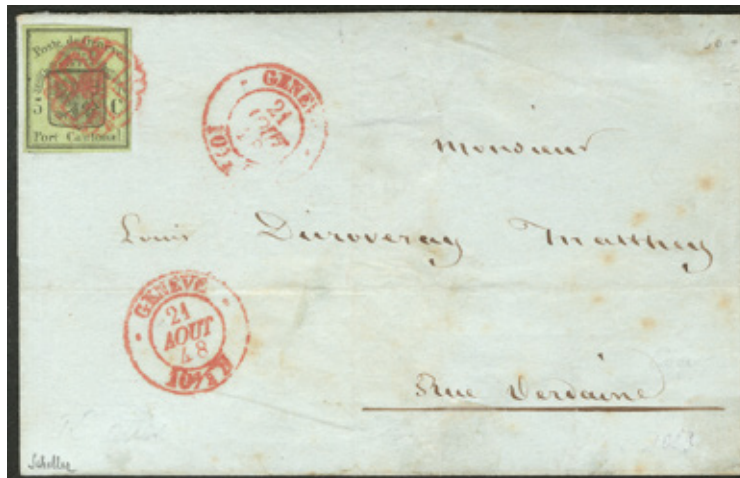 Poste de Genève
5 C
Port Cantonal
GENÈV
21
AOUT
Monsieur
Louis Duroveray Matthey
GENÈVE
21
AOUT
48
10
Rue Verdaine
Scheller